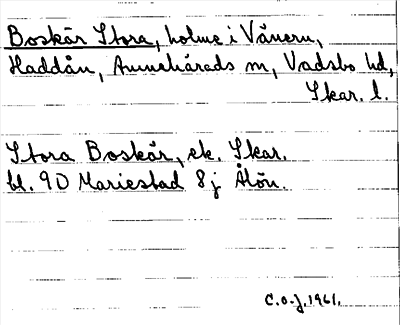 Boskär Stora, holme i Vänern,
Haddån, Amnehärads sn, Vadsbo hd,
Skar. l.
Stora Boskär, ek. Skar.
bl. 90 Mariestad 8j Ålön.
C.O.J. 1961.